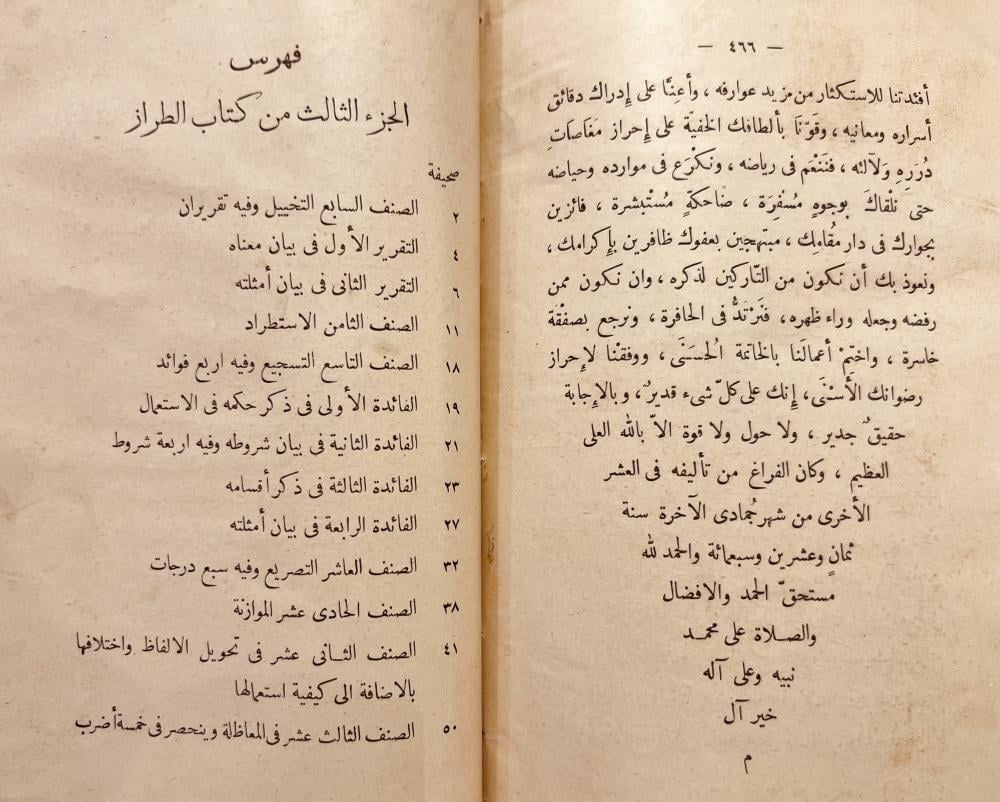 — ٤٦٦ —
أفئدتنا للاستكثار من مزيد عوارفه ، وأعِنّا على إدراك دقائق
أسراره ومعانيه ، وقَوّنَا بألطافك الخفيّة على إحراز مَغَاصَاتِ
دُرَرِهِ وَلآلئه ، فنَنْعَم فى رياضه ، ونكْرَع فى موارده وحياضه
حتى نلقاكَ بوجوهٍ مُسْفِرَة ، ضاحكةٍ مُسْتَبْشرة ، فائزين
بجوارك فى دار مُقامِك ، مبتهجين بعفوك ظافرين بإكرامك ،
ونعوذ بك أن نكون من التّاركين لذكره ، وان نكون ممن
رفضه وجعله وراء ظهره ، فنَرْتَدُّ فى الحافرة ، ونرجع بصفْقة
خاسرة ، واختِمْ أعمالَنا بالخاتمة الُحسَنَى ، ووفقْنا لإحراز
رضوانك الَأسْنَى ، إنك على كلّ شىء قديرٌ ، وبالإجابة
حقيقٌ جدير ، ولا حول ولا قوة الاّ بالله العلى
العظيم ، وكان الفراغ من تأليفه فى العشر
الأخرى من شهر جُمادى الآخرة سنة
ثمانٍ وعشرين وسبعمائة والحمد لله
مستحقّ الحمد والافضال
والصلاة على محمد
نبيه وعلى آله
خير آل
م
فهرس
الجزء الثالث من كتاب الطراز
صحيفة
٢ الصنف السابع التخييل وفيه تقريران
٤ التقرير الأول فى بيان معناه
٦ التقرير الثانى فى بيان أمثلته
١١ الصنف الثامن الاستطراد
١٨ الصنف التاسع التسجيع وفيه اربع فوائد
١٩ الفائدة الأولى فى ذكر حكمه فى الاستعمال
٢١ الفائدة الثانية فى بيان شروطه وفيه اربعة شروط
٢٣ الفائدة الثالثة فى ذكر أقسامه
٢٧ الفائدة الرابعة فى بيان أمثلته
٣٢ الصنف العاشر التصريع وفيه سبع درجات
٣٨ الصنف الحادى عشر الموازنة
٤١ الصنف الثانى عشر فى تحويل الالفاظ واختلافها
بالاضافة الى كيفية استعمالها
٥٠ الصنف الثالث عشر فى المعاظلة وينحصر فى خمسة أضرب